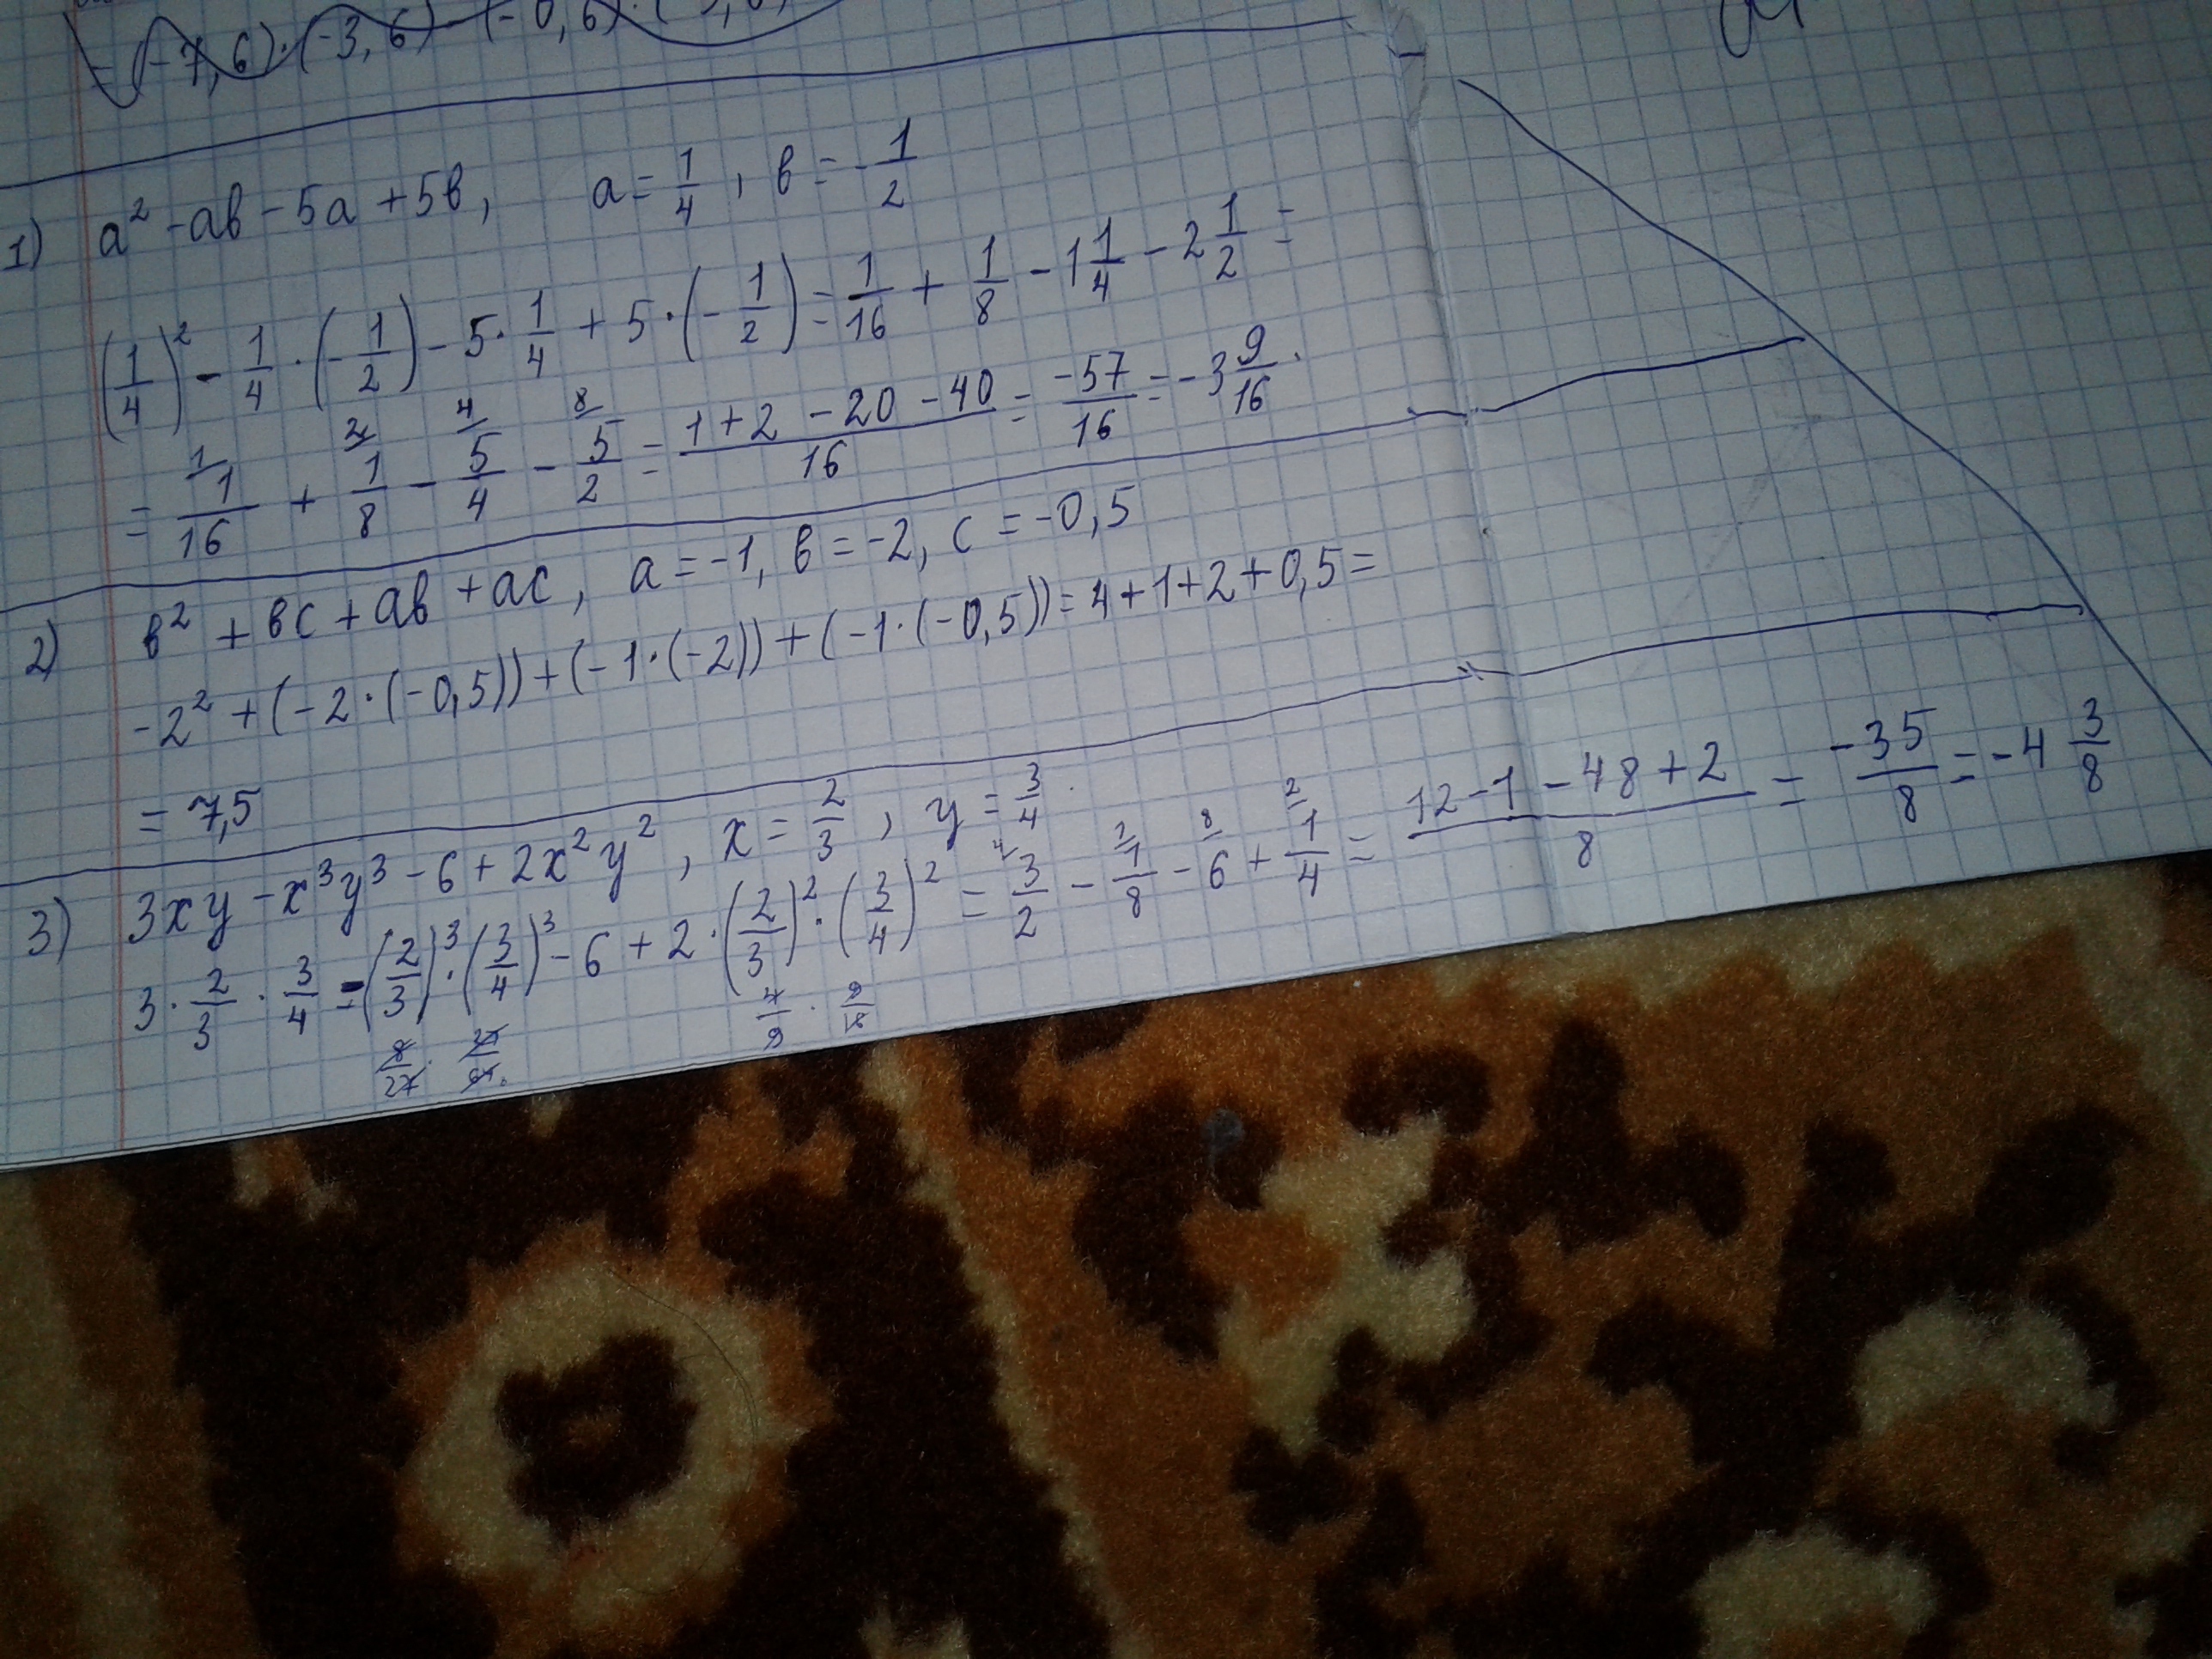 - (-7,6)·(-3,6) - (-0,6)·
1) a² - ab - 5a + 5b, a = 1/4, b = -1/2
(1/4)² - 1/4 · (-1/2) - 5 · 1/4 + 5 · (-1/2) = 1/16 + 1/8 - 1 1/4 - 2 1/2 =
= 1/16 + 1/8 - 5/4 - 5/2 = (1 + 2 - 20 - 40)/16 = -57/16 = -3 9/16.
2) b² + bc + ab + ac, a = -1, b = -2, c = -0,5
-2² + (-2·(-0,5)) + (-1·(-2)) + (-1·(-0,5)) = 4 + 1 + 2 + 0,5 =
= 7,5
3) 3xy - x³y³ - 6 + 2x²y², x = 2/3, y = 3/4.
3 · 2/3 · 3/4 - (2/3)³ · (3/4)³ - 6 + 2 · (2/3)² · (3/4)² = 3/2 - 1/8 - 6 + 1/4 = (12 - 1 - 48 + 2)/8 = -35/8 = -4 3/8
8/27 · 27/64 4/9 · 9/16